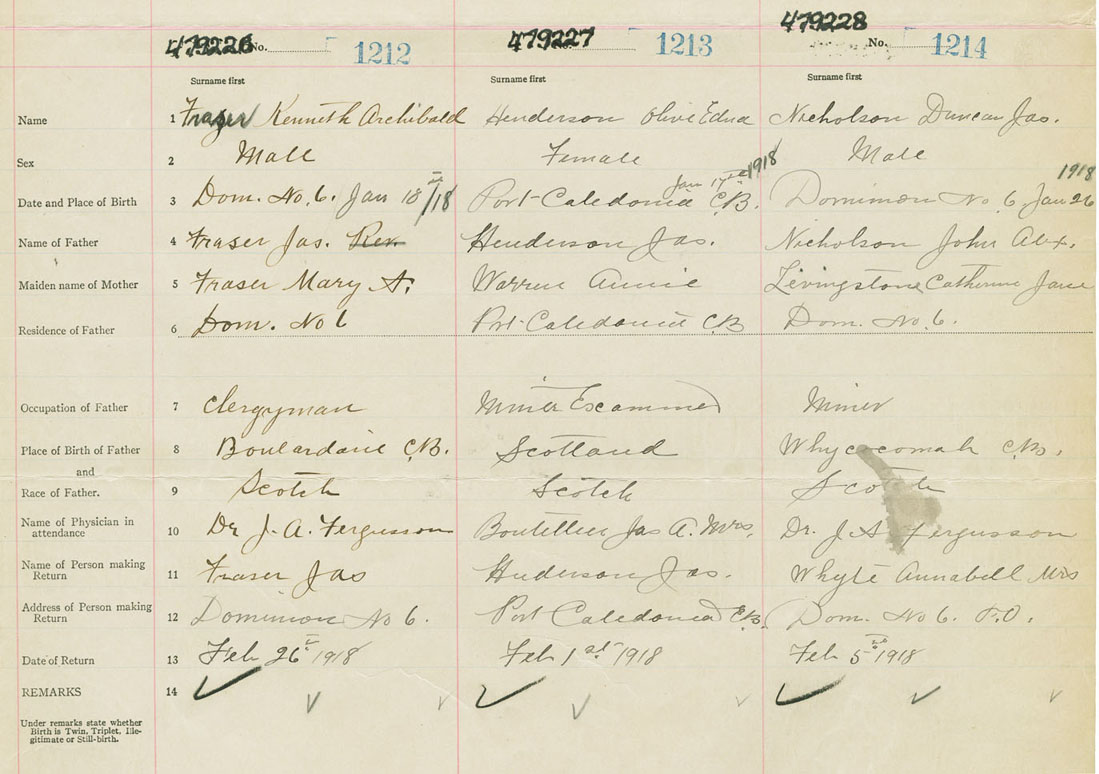 479226 No. 1212 479227 No. 1213 479228 No. 1214
Surname first Surname first Surname first
Name 1 Fraser Kenneth Archibald Henderson Olive Edna Nicholson Duncan Jas.
Sex 2 Male Female Male
Date and Place of Birth 3 Dom. No. 6. Jan 18th/18 Port Caledonia C.B. Jan 17th 1918 Dominion No 6 Jan 26 1918
Name of Father 4 Fraser Jas. Rev. Henderson Jas. Nicholson John Alex.
Maiden name of Mother 5 Fraser Mary A. Warren Annie Livingstone Catherine Jane
Residence of Father 6 Dom. No 6 Port Caledonia C.B Dom. No. 6.
Occupation of Father 7 Clergyman Miner Miner
Place of Birth of Father 8 Boulardarie C.B. Scotland Whycocomah C.B.
and
Race of Father. 9 Scotch Scotch Scotch
Name of Physician in
attendance 10 Dr J. A. Fergusson Boutellier Jas A. Mrs. Dr. J A Fergusson
Name of Person making
Return 11 Fraser Jas Henderson Jas. Whyte Annabell Mrs
Address of Person making
Return 12 Dominion No 6. Port Caledonia C.B. Dom. No 6. P.O.
Date of Return 13 Feb 26th 1918 Feb 1st 1918 Feb 5th 1918
REMARKS 14
Under remarks state whether
Birth is Twin, Triplet, Ille-
gitimate or Still-birth.